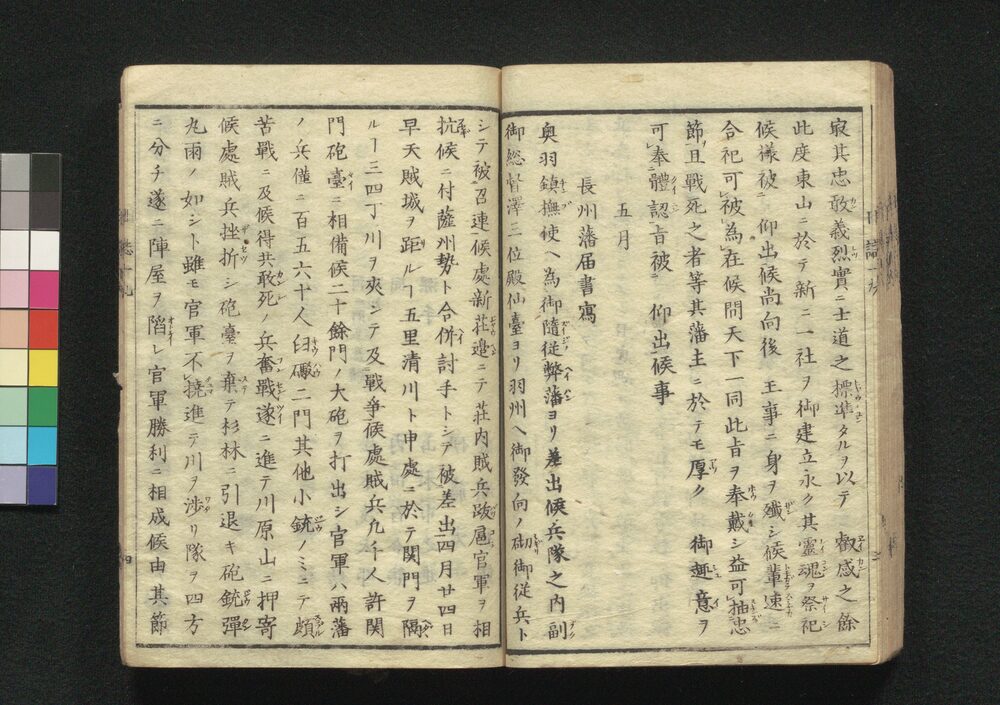 寂其忠敢義烈實ニ士道之標準タルヲ以テ 叡感之餘
此度東山ニ於テ新ニ一社ヲ御建立永ク其靈魂ヲ祭祀
候樣被 仰出候尚向後 王事ニ身ヲ殲シ候輩速ニ
合祀可被為在候間天下一同此旨ヲ奉戴シ益可抽忠
節且戰死之者等其藩主ニ於テモ厚ク 御趣意ヲ
可奉體認旨被 仰出候事
五月
長州藩届書寫
奥羽鎮撫使ヘ為御隨從弊藩ヨリ差出候兵隊之内副
御総督澤三位殿仙臺ヨリ羽州ヘ御發向ノ砌御從兵ト
シテ被召連候處新荘邉ニテ荘内賊兵跋扈官軍ヲ相
抗候ニ付薩州勢ト合併討手トシテ被差出四月廿四日
早天賊城ヲ距ルヿ五里清川ト申處ニ於テ関門ヲ隔
ルヿ三四丁川ヲ夾シテ及戰爭候處賊兵九千人許関
門砲臺ニ相備候二十餘門ノ大砲ヲ打出シ官軍ハ兩藩
ノ兵僅ニ百五六十人臼礮二門其他小銃ノミニテ頗
苦戰ニ及候得共敢死ノ兵奮戰遂ニ進テ川原山ニ押寄
候處賊兵挫折シ砲臺ヲ棄テ杉林ニ引退キ砲銃彈
丸雨ノ如シト雖モ官軍不撓進テ川ヲ渉リ隊ヲ四方
ニ分チ遂ニ陣屋ヲ陷レ官軍勝利ニ相成候由其節